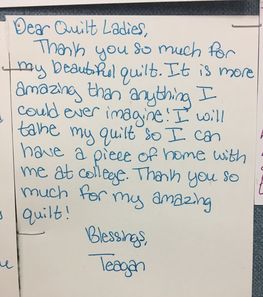 Dear Quilt Ladies,
Thank you so much for
my beautiful quilt. It is more
amazing than anything I
could ever imagine! I will
take my quilt so I can
have a piece of home with
me at college. Thank you so
much for my amazing
quilt!
Blessings,
Teagan